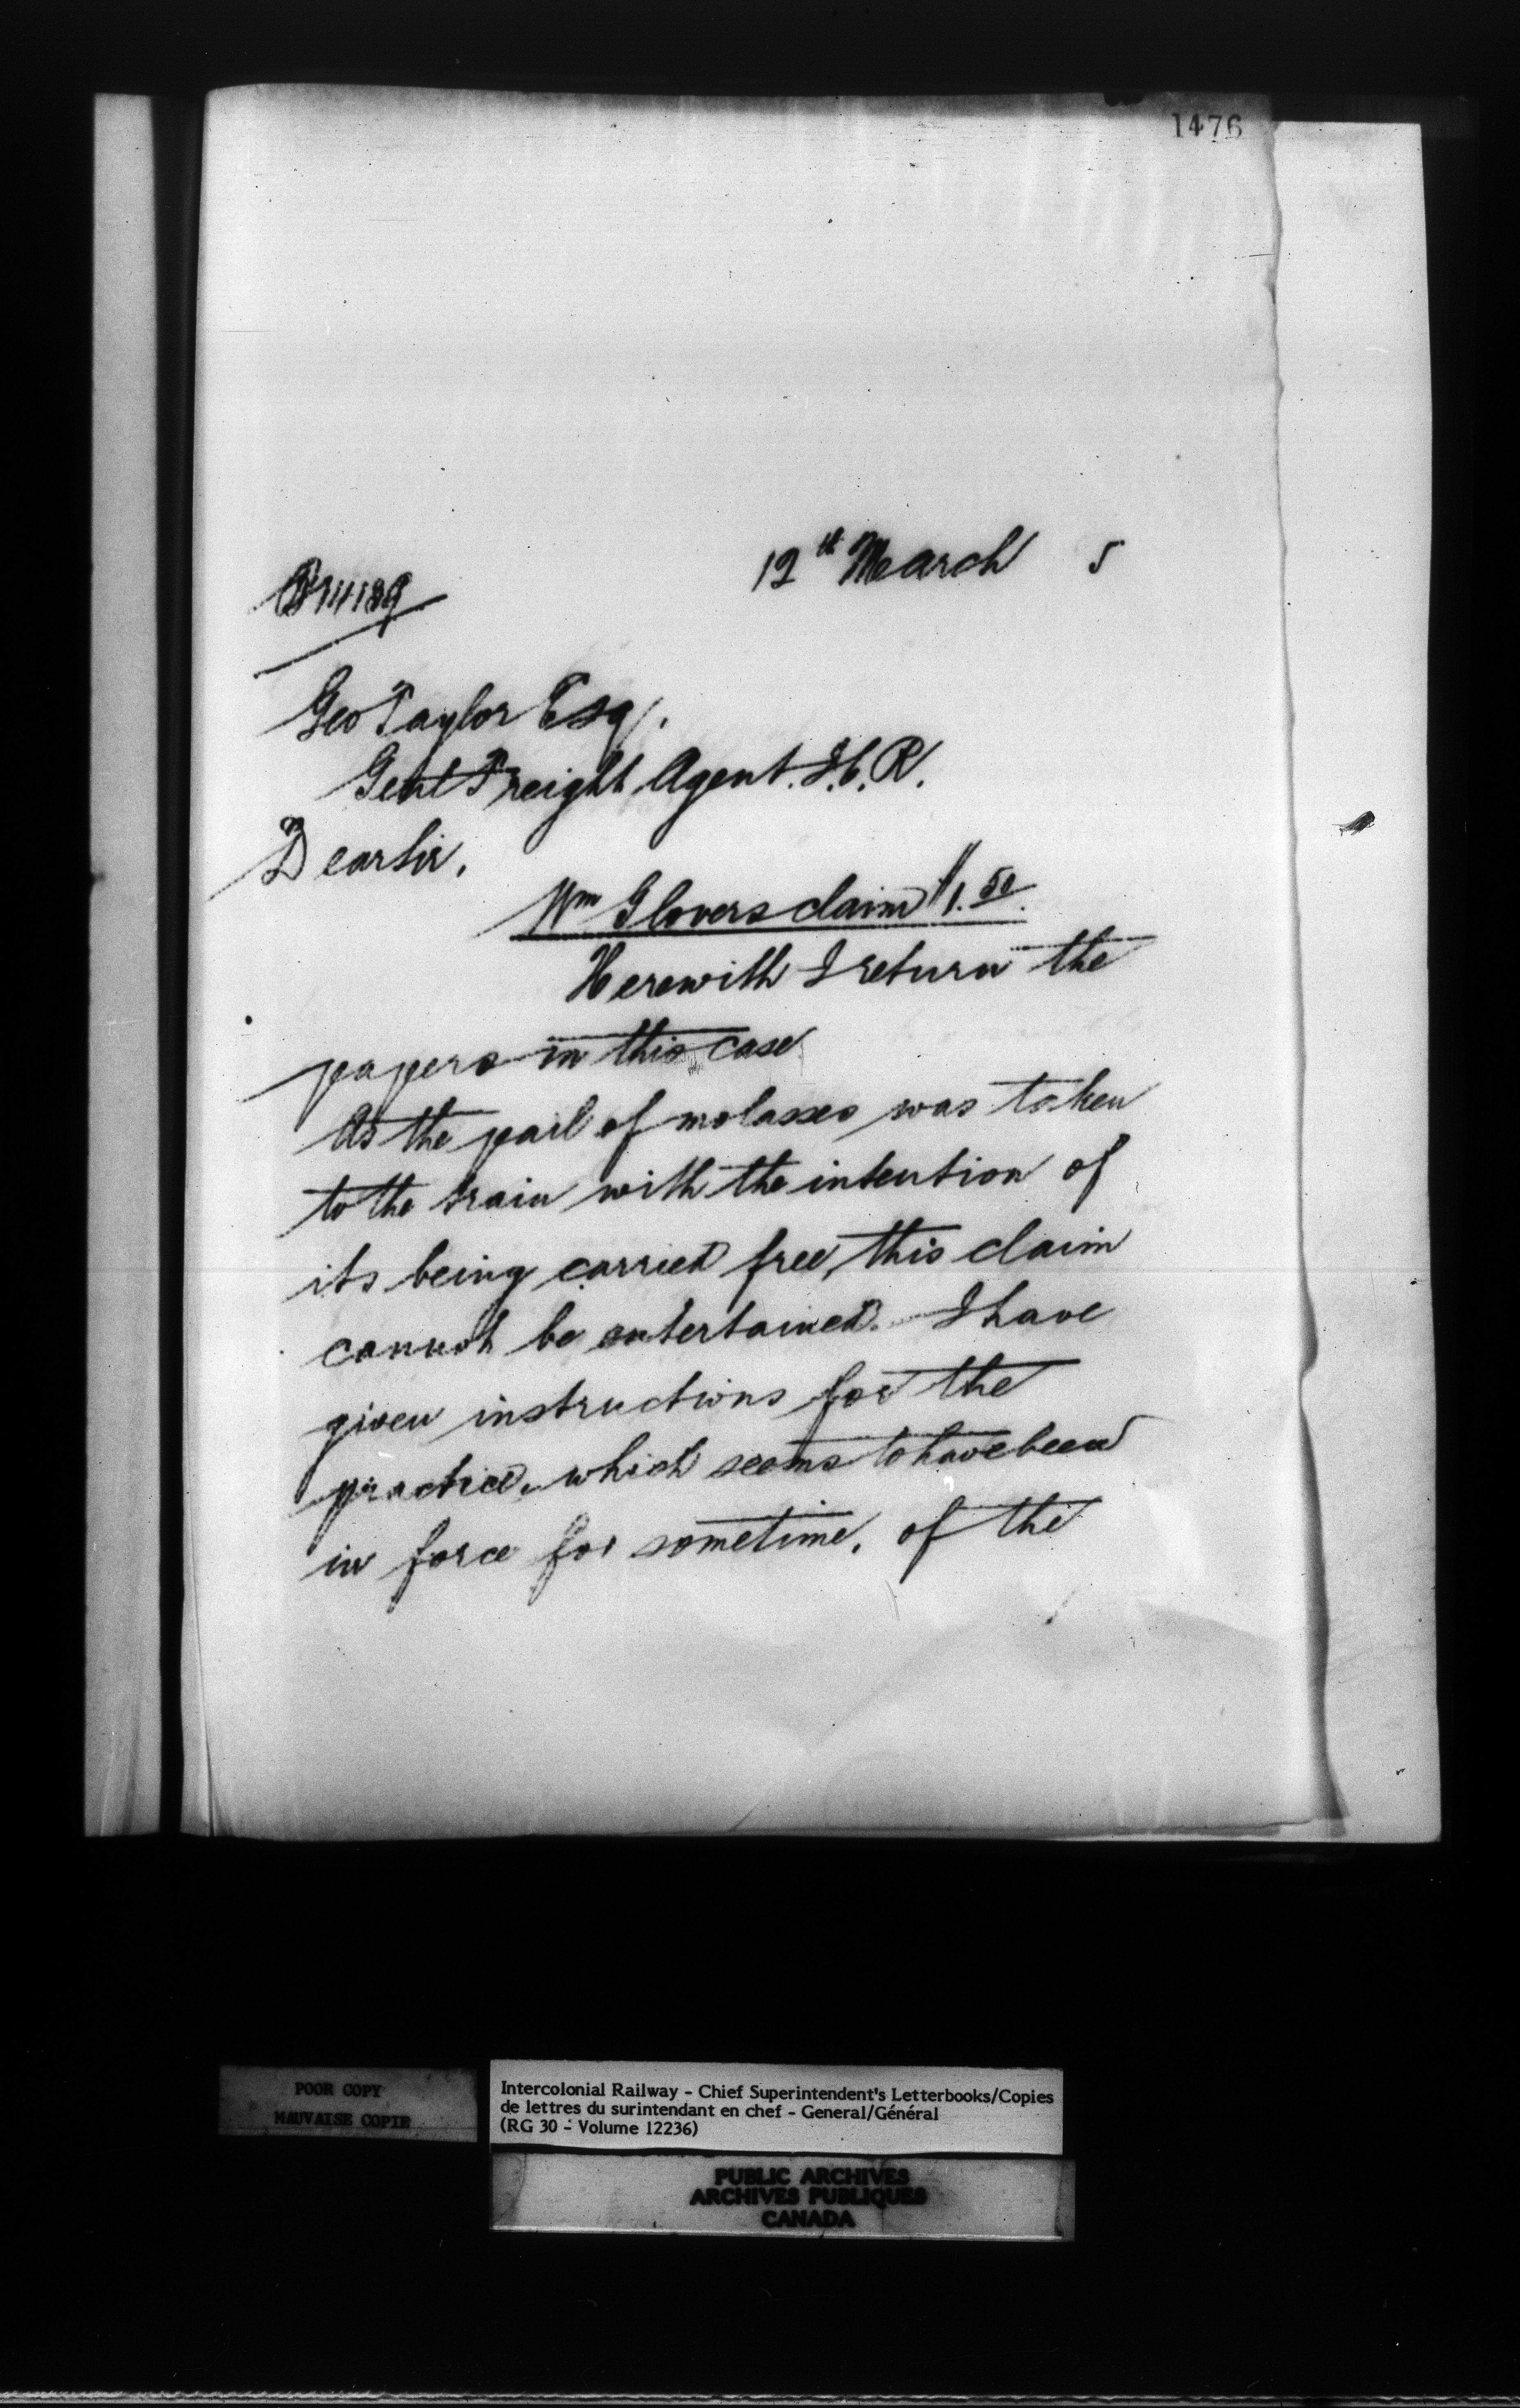 1476
12th March 5
Geo Taylor Esq.
Genl Freight Agent. I.C.R.
Dear Sir,
Wm Glovers claim $1.50
Herewith I return the
papers in this case
As the pail of molasses was taken
to the train with the intention of
its being carried free, this claim
cannot be entertained. I have
given instructions for the
practice, which seems to have been
in force for sometime, of the
POOR COPY
MAUVAISE COPIE
Intercolonial Railway - Chief Superintendent's Letterbooks/Copies
de lettres du surintendant en chef - General/Général
(RG 30 - Volume 12236)
PUBLIC ARCHIVES
ARCHIVES PUBLIQUES
CANADA